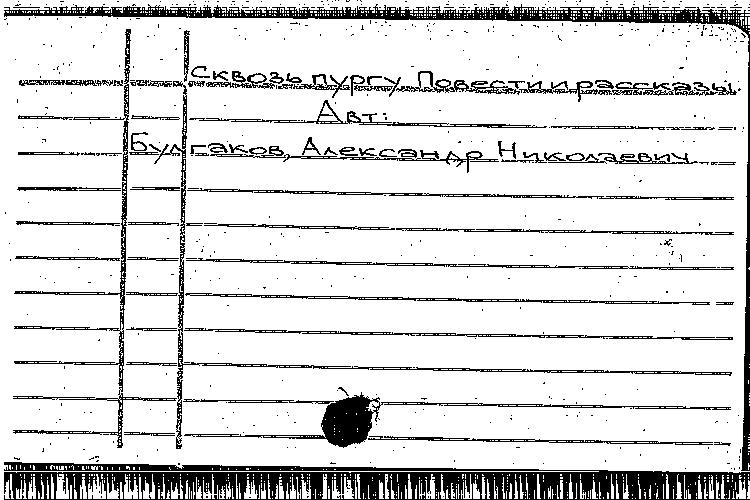 Сквозь пургу. Повести и рассказы.
Авт:
Булгаков, Александр Николаевич